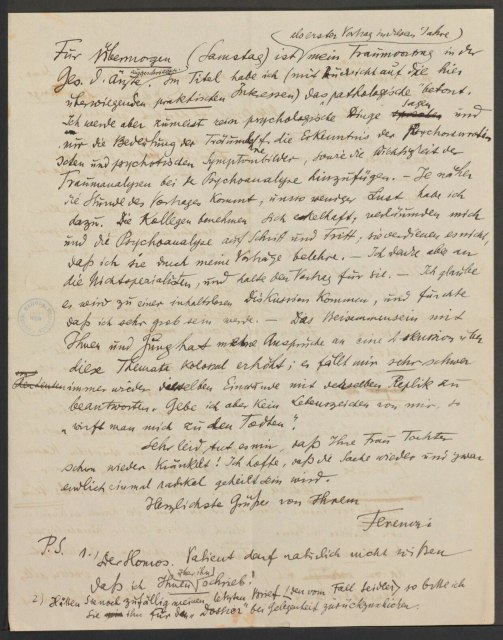 (als erster Vortrag in diesem Jahre)
Für Übermorgen (Samstag) ist mein Traumvortrag in der
Ges. d. Ärzte angeschrieben. Im Titel habe ich (mit Rücksicht auf die hier
überwiegenden praktischen Interessen) das „pathologische" betont.
Ich werde aber zumeist rein psychologische Dinge sagen und
nur die Bedeutung der Träume für die Erkenntnis der psychoneurotischen
und psychotischen Symptombilder, sowie die Wichtigkeit der
Traumanalysen bei der Psychoanalyse hinzufügen. – Je näher
die Stunde des Vortrages kommt, umso weniger Lust habe ich
dazu. Die Kollegen benehmen sich ekelhaft, verläumden mich
und die Psychoanalyse auf Schritt und Tritt; sie verdienen es nicht,
daß ich sie durch meine Vorträge belehre. – Ich denke aber an
die Nichtspezialisten, und halte den Vortrag für sie. – Ich glaube
es wird zu einer inhaltslosen Diskussion kommen, und fürchte
daß ich sehr grob sein werde. – Das Beisammensein mit
Ihnen und Jung hat meine Ansprüche an eine Diskussion über
diese Themata kolossal erhöht; es fällt mir sehr schwer
immer wieder dieselben Einwände mit derselben Replik zu
beantworten. Gebe ich aber kein Lebenszeichen von mir, so
„wirft man mich zu den Todten".
Sehr leid tut es mir, daß Ihre Frau Tochter
schon wieder kränkelt! Ich hoffe, daß die Sache wieder und zwar
endlich einmal radikal geheilt sein wird.
Herzlichste Grüße von Ihrem
Ferenczi
P.S. 1.) Der Homos. Patient darf natürlich nicht wissen
daß ich Ihnen über ihn schrieb!
2) Haben Sie noch zufällig meinen letzten Brief (den vom Fall Seidler) so bitte ich
Sie ihn für den „Dossier" bei Gelegenheit zurückzuschicken.